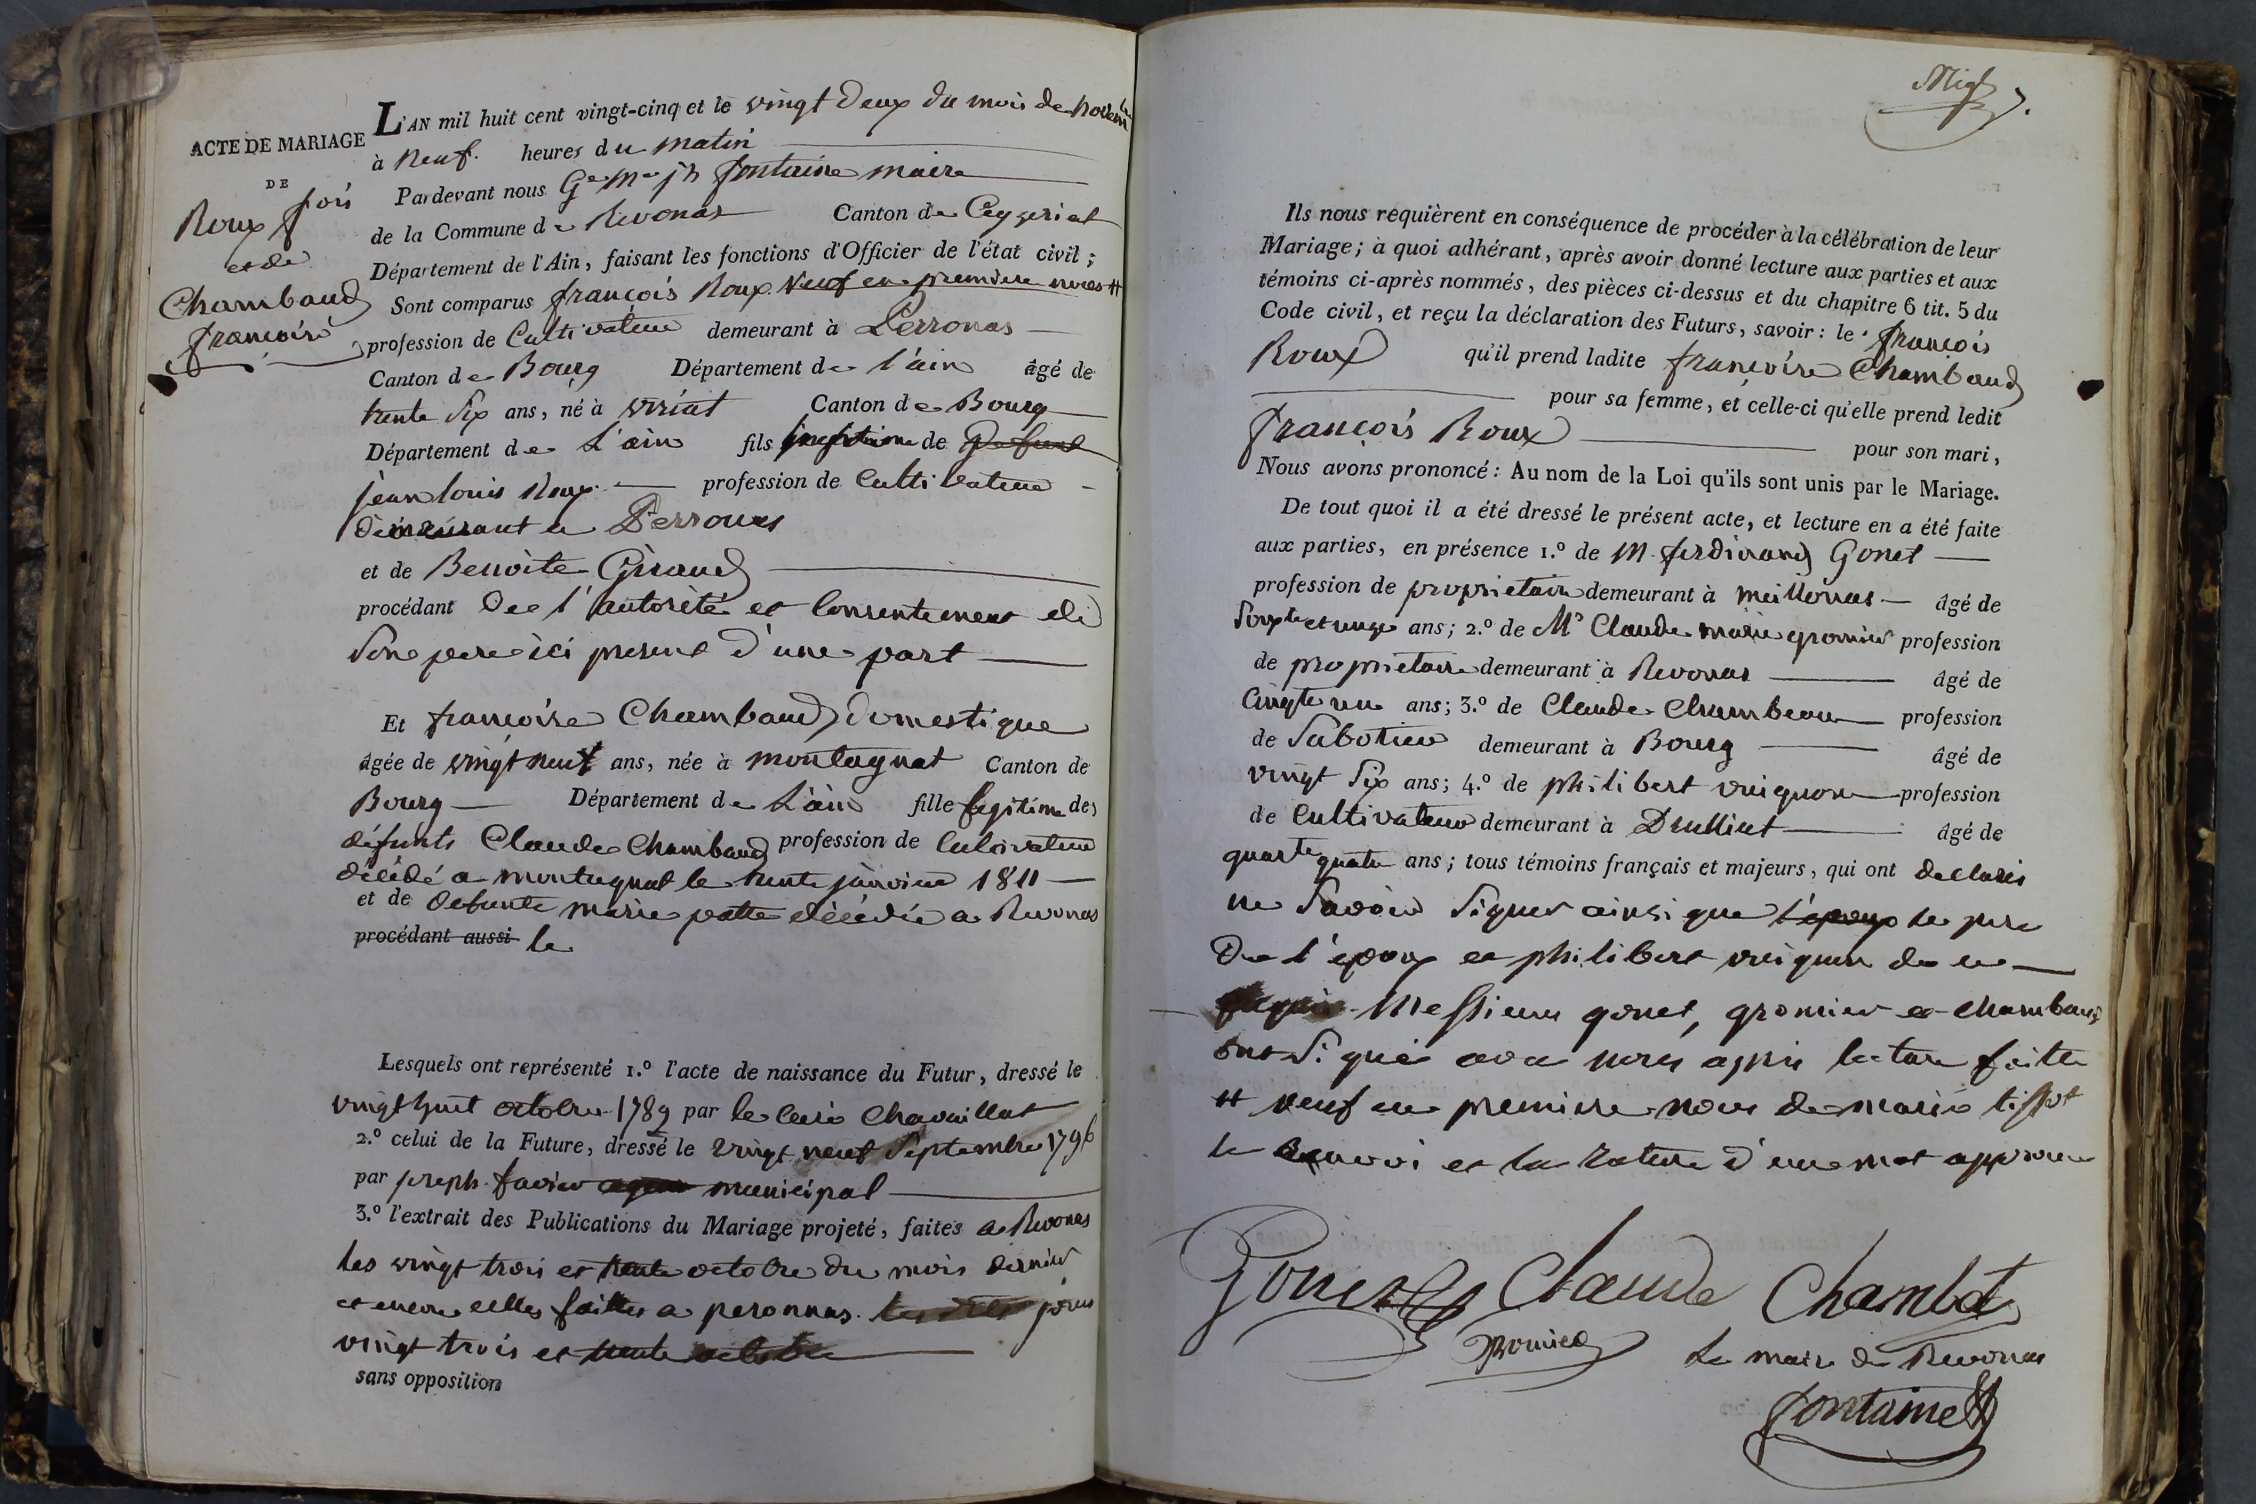 ACTE DE MARIAGE
DE
Roux fois
et de
Chambaud
françoise
L'AN mil huit cent vingt-cinq et le vingt Deux du mois de Novem
à Neuf heures du matin
Pardevant nous fontaine maire
de la Commune de Revonas Canton de Ceyzeriat
Département de l'Ain, faisant les fonctions d'Officier de l'état civil;
Sont comparus françois Roux Veuf en premiere noces #
profession de Cultivateur demeurant à Perronas
Canton de Bourg Département de l'ain âgé de
trente Six ans, né à viriat Canton de Bourg
Département de L'ain fils légitime de Defunt
jean louis Roux profession de Cultivateur
demeurant a Perronas
et de Benoite Giraud
procédant De l'autorité et Consentement de
Son pere ici present d'une part
Et francoise Chambaud domestique
âgée de vingt neuf ans, née à montagnat Canton de
Bourg Département de L'ain fille legitime des
défunts Claude Chambaud profession de Cultivateur
décédé a montagnat le trente janvier 1811
et de defunte marie patte décédée a Revonas
procédant aussi le
Lesquels ont représenté 1.º l'acte de naissance du Futur, dressé le
vingt huit octobre 1789 par le Curé Chavaillat
2.º celui de la Future, dressé le vingt neuf Septembre 1796
par joseph favier agent municipal
3.º l'extrait des Publications du Mariage projeté, faites a Revonas
les vingt trois et trente octobre du mois dernier
et encore celles faittes a peronnas les dits jours
vingt trois et trente octobre
sans opposition
Ils nous requièrent en conséquence de procéder à la célébration de leur
Mariage; à quoi adhérant, après avoir donné lecture aux parties et aux
témoins ci-après nommés, des pièces ci-dessus et du chapitre 6 tit. 5 du
Code civil, et reçu la déclaration des Futurs, savoir: le françois
Roux qu'il prend ladite françoise Chambaud
pour sa femme, et celle-ci qu'elle prend ledit
françois Roux pour son mari,
Nous avons prononcé: Au nom de la Loi qu'ils sont unis par le Mariage.
De tout quoi il a été dressé le présent acte, et lecture en a été faite
aux parties, en présence 1.º de M. ferdinand Gonet
profession de proprietaire demeurant à meillonas âgé de
ans; 2.º de Mr Claude marie gromier profession
de proprietaire demeurant à Revonas âgé de
ans; 3.º de Claude Chambeau profession
de Sabotier demeurant à Bourg âgé de
vingt Six ans; 4.º de philibert vuignon profession
de Cultivateur demeurant à Druillat âgé de
quarte quatre ans; tous témoins français et majeurs, qui ont declarés
ne Savoir Signer ainsi que l'epoux le pere
De l'époux et philibert vuignon de ce
Messieurs gonet, gromier et Chambaud
ont Signé avec nous apprès lecture faitte
# veuf en premiere noces de marie tissot
le Renvoi et la rature d'une mot approuvé
Gonet Claude Chambot
Gromier Le maire de Revonas
fontaine